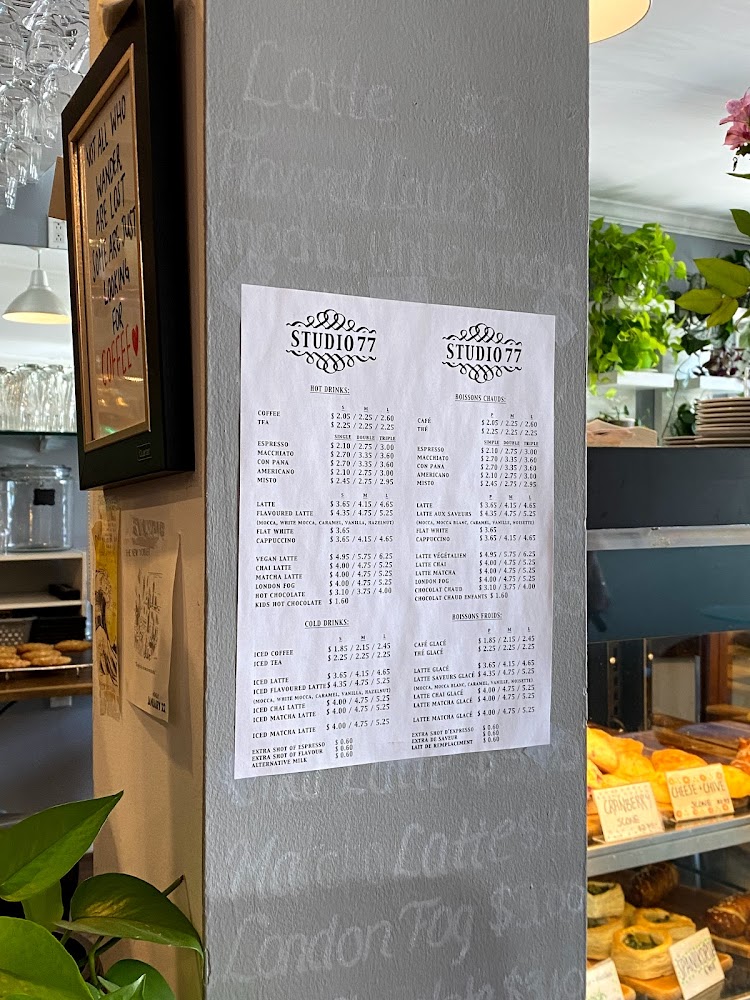 NOT ALL WHO
WANDER
ARE LOST
SOME ARE JUST
LOOKING
FOR
COFFEE
Latte
STUDIO 77
HOT DRINKS:
S M L
COFFEE $ 2.05 / 2.25 / 2.60
TEA $ 2.25 / 2.25 / 2.25
SINGLE DOUBLE TRIPLE
ESPRESSO $ 2.10 / 2.75 / 3.00
MACCHIATO $ 2.70 / 3.35 / 3.60
CON PANA $ 2.70 / 3.35 / 3.60
AMERICANO $ 2.10 / 2.75 / 3.00
MISTO $ 2.45 / 2.75 / 2.95
S M L
LATTE $ 3.65 / 4.15 / 4.65
FLAVOURED LATTE $ 4.35 / 4.75 / 5.25
(MOCCA, WHITE MOCCA, CARAMEL, VANILLA, HAZELNUT)
FLAT WHITE $ 3.65
CAPPUCCINO $ 3.65 / 4.15 / 4.65
VEGAN LATTE $ 4.95 / 5.75 / 6.25
CHAI LATTE $ 4.00 / 4.75 / 5.25
MATCHA LATTE $ 4.00 / 4.75 / 5.25
LONDON FOG $ 4.00 / 4.75 / 5.25
HOT CHOCOLATE $ 3.10 / 3.75 / 4.00
KIDS HOT CHOCOLATE $ 1.60
COLD DRINKS:
S M L
ICED COFFEE $ 1.85 / 2.15 / 2.45
ICED TEA $ 2.25 / 2.25 / 2.25
ICED LATTE $ 3.65 / 4.15 / 4.65
ICED FLAVOURED LATTE $ 4.35 / 4.75 / 5.25
(MOCCA, WHITE MOCCA, CARAMEL, VANILLA, HAZELNUT)
ICED CHAI LATTE $ 4.00 / 4.75 / 5.25
ICED MATCHA LATTE $ 4.00 / 4.75 / 5.25
ICED MATCHA LATTE $ 4.00 / 4.75 / 5.25
EXTRA SHOT OF ESPRESSO $ 0.60
EXTRA SHOT OF FLAVOUR $ 0.60
ALTERNATIVE MILK $ 0.60
STUDIO 77
BOISSONS CHAUDS:
P M L
CAFÉ $ 2.05 / 2.25 / 2.60
THÉ $ 2.25 / 2.25 / 2.25
SIMPLE DOUBLE TRIPLE
ESPRESSO $ 2.10 / 2.75 / 3.00
MACCHIATO $ 2.70 / 3.35 / 3.60
CON PANA $ 2.70 / 3.35 / 3.60
AMERICANO $ 2.10 / 2.75 / 3.00
MISTO $ 2.45 / 2.75 / 2.95
P M L
LATTE $ 3.65 / 4.15 / 4.65
LATTE AUX SAVEURS $ 4.35 / 4.75 / 5.25
(MOCCA, MOCCA BLANC, CARAMEL, VANILLE, NOISETTE)
FLAT WHITE $ 3.65
CAPPUCCINO $ 3.65 / 4.15 / 4.65
LATTE VÉGÉTALIEN $ 4.95 / 5.75 / 6.25
LATTE CHAI $ 4.00 / 4.75 / 5.25
LATTE MATCHA $ 4.00 / 4.75 / 5.25
LONDON FOG $ 4.00 / 4.75 / 5.25
CHOCOLAT CHAUD $ 3.10 / 3.75 / 4.00
CHOCOLAT CHAUD ENFANTS $ 1.60
BOISSONS FROIDS:
P M L
CAFÉ GLACÉ $ 1.85 / 2.15 / 2.45
THÉ GLACÉ $ 2.25 / 2.25 / 2.25
LATTE GLACÉ $ 3.65 / 4.15 / 4.65
LATTE SAVEURS GLACÉ $ 4.35 / 4.75 / 5.25
(MOCCA, MOCCA BLANC, CARAMEL, VANILLE, NOISETTE)
LATTE CHAI GLACÉ $ 4.00 / 4.75 / 5.25
LATTE MATCHA GLACÉ $ 4.00 / 4.75 / 5.25
LATTE MATCHA GLACÉ $ 4.00 / 4.75 / 5.25
EXTRA SHOT D'ESPRESSO $ 0.60
EXTRA DE SAVEUR $ 0.60
LAIT DE REMPLACEMENT $ 0.60
Latte $4
London Fog $3.00
JANUARY 22
CRANBERRY
SCONE
CHEESE + CHIVE
SCONE